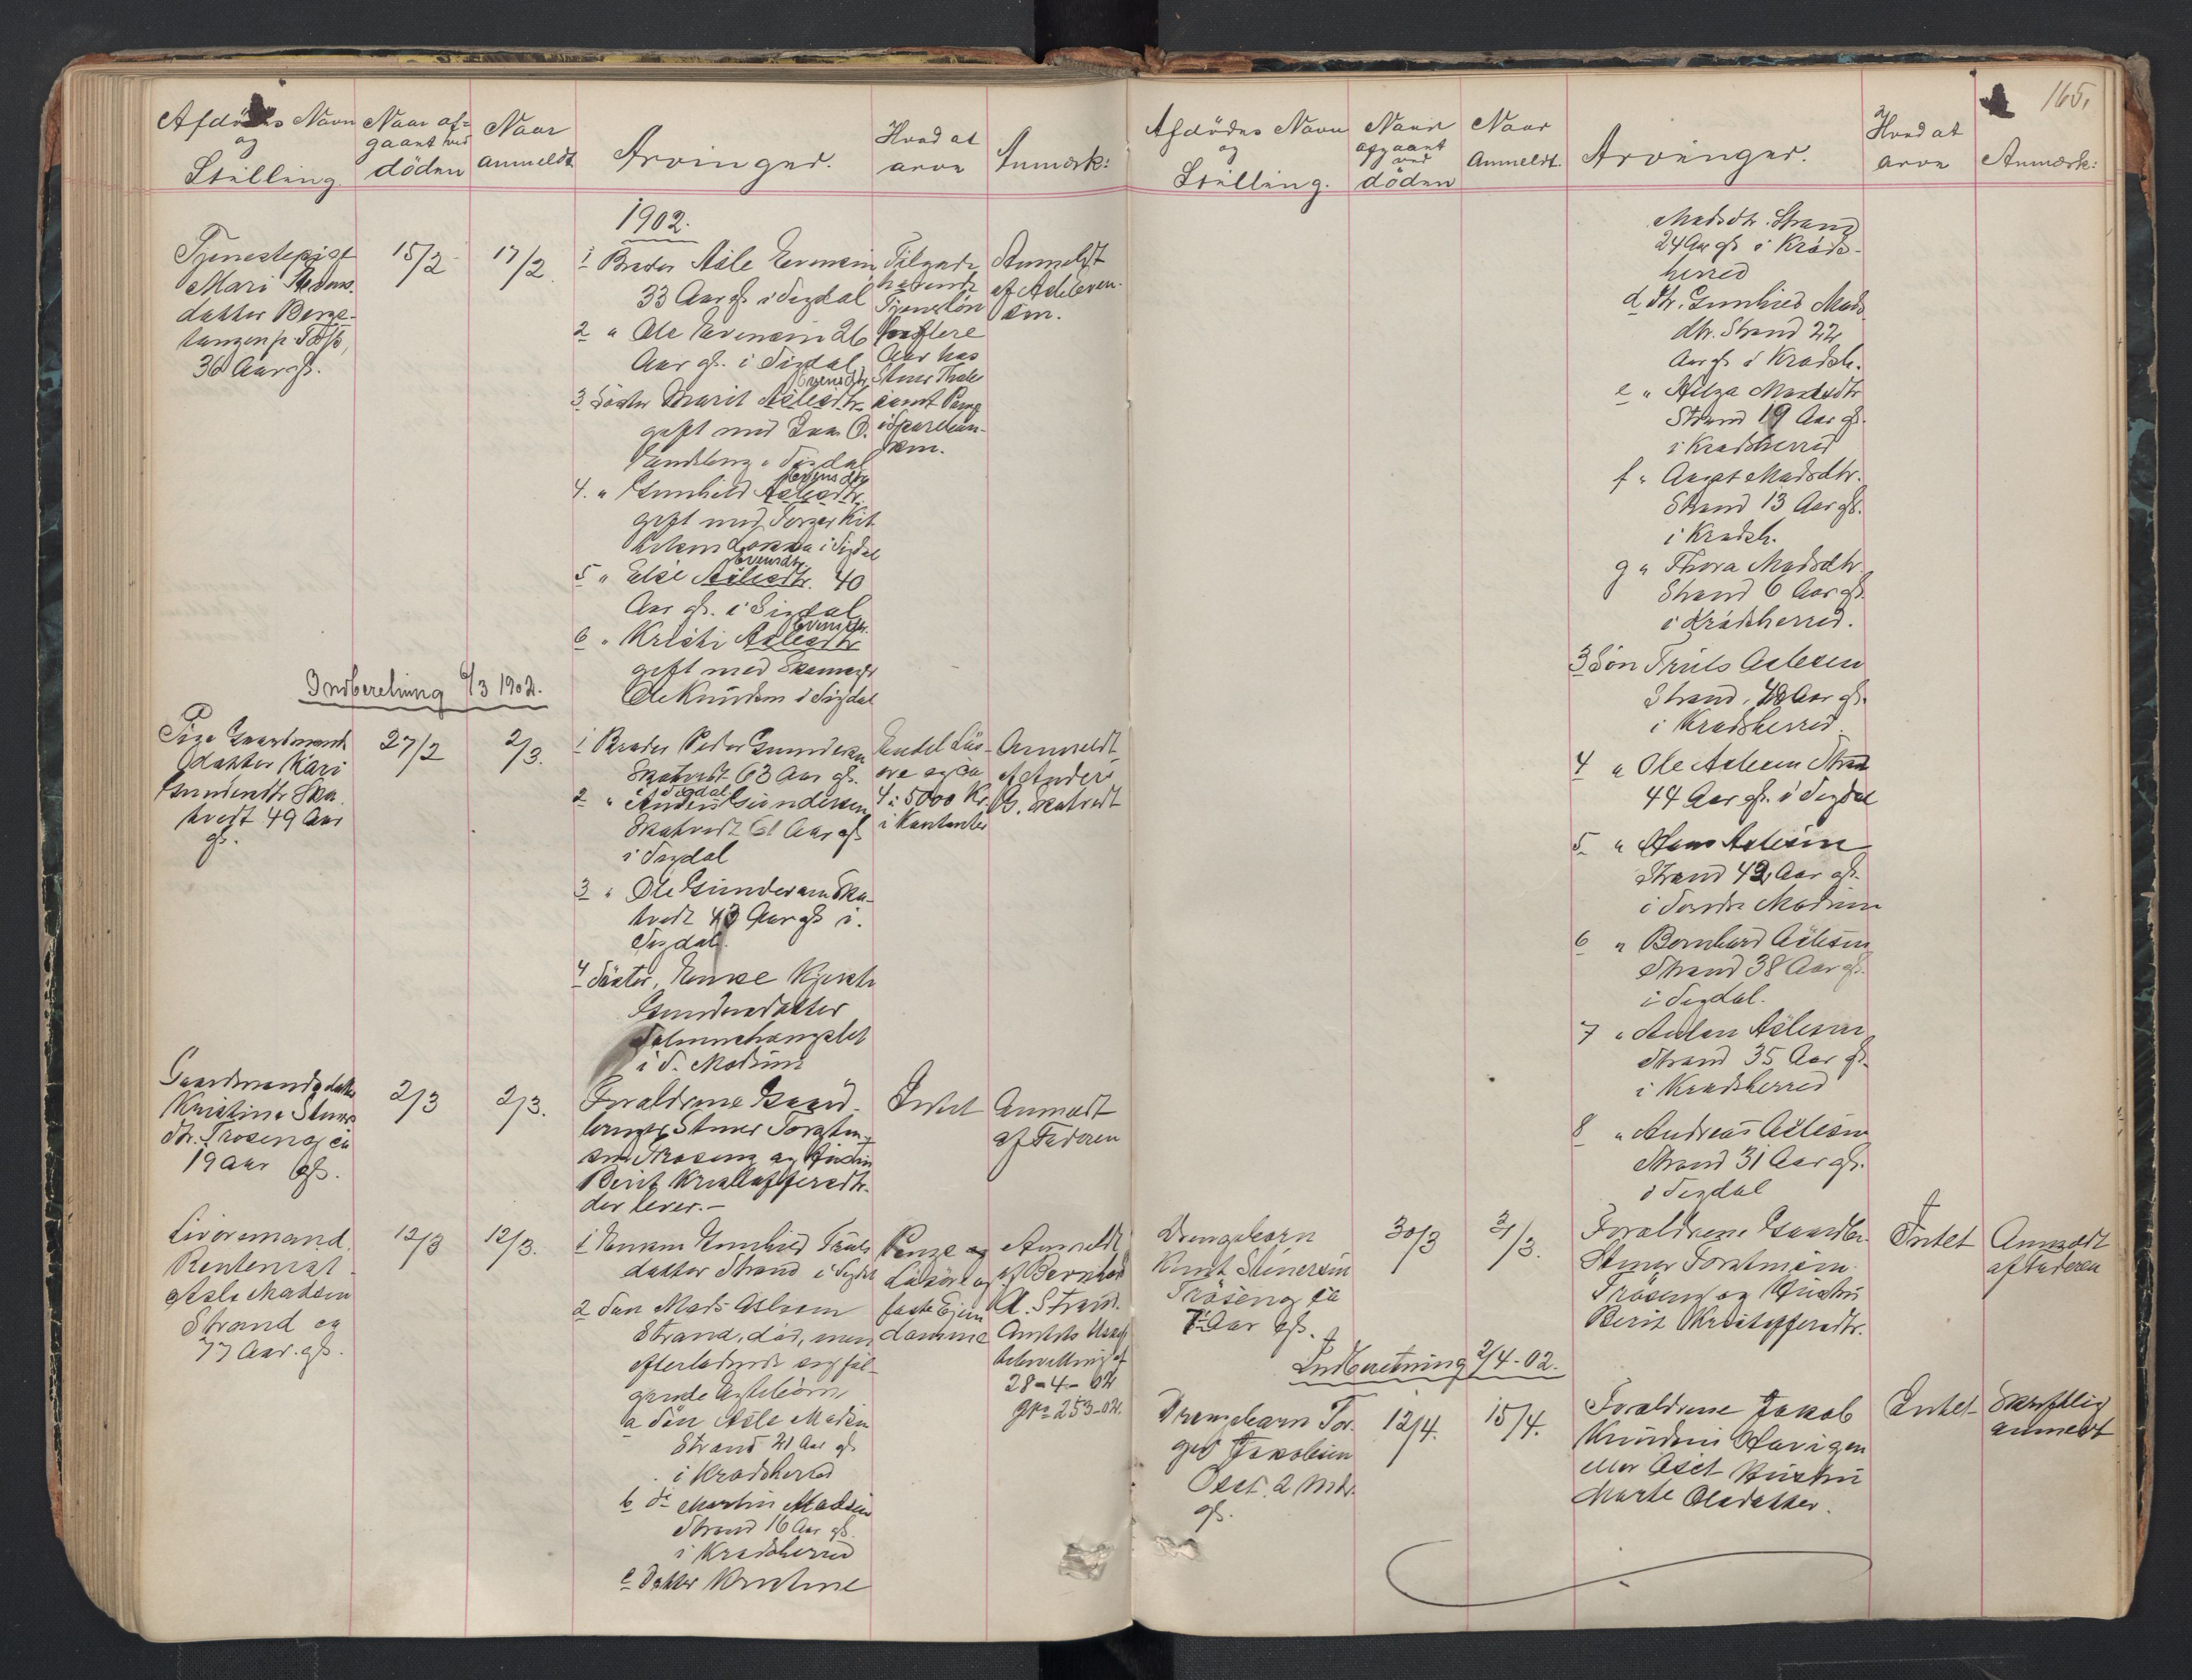 Afdödes Navn
og
Stilling.
Naar af=
gaaet ved
döden
Naar
anmeldt
Arvinger.
Hvad at
arve
Anmærk:
1902.
Tjenestepige
Mari
datter Berge-
tangen p. T
36 Aar gl.
15/2
17/2
1 Broder Asle Evensen
33 Aar gl. i Sigdal
2 " Ole Evensen 26
Aar gl. i Sigdal
Evensdtr.
3 Söster Marit Aslesdtr.
gift med O.
i Sigdal
Evensdtr
4. " Gunhild Aslesdtr.
gift med Torger Kit
i Sigdal
Evensdtr.
5 " Else Aslesdtr. 40
Aar gl. i Sigdal
Evensdtr.
6 " Kristi Aslesdtr
gift med Skomager
Ole Knudsen i Sigdal
Tilgode
havende
Tjenestlön
for flere
Aar hos
Stener
samt Penge
i Spareban-
ken.
Anmeldt
af Asle Even-
sen.
Indberetning 6/3 1902.
Pige Gaardmands
datter Kari
Gundersdtr Ska
tvedt 49 Aar
gl.
27/2
2/3.
1 Broder Peder Gundersen
Skatvedt 63 Aar gl.
i Sigdal
2 " Anders Gundersen
Skatvedt 61 Aar gl.
i Sigdal
3 " Ole Gundersen Ska-
tvedt 43 Aar gl. i
Sigdal.
4 Söster, Enke Kjersti
Gundersdatter
i S. Modum
Endel Lös-
öre og ca
4 à 5000 Kr.
i Kontanter
Anmeldt
af Anders
G. Skatvedt
Gaardmandsdatter
Kristine Steners
dtr. Tröseng ca
19 Aar gl.
2/3
2/3.
Forældrene Gaard-
bruger Stener Torsten-
sen Tröseng og Hustru
Berit Kristoffersdtr.
der lever.-
Intet
Anmeldt
af Faderen
Livöremand,
Rentenist
Asle Madsen
Strand ca
77 Aar. gl.
12/3
12/3.
1 Enken Gunhild Truls
datter Strand i Sigdal
2 Sön Mads Aslesen
Strand, död, men
efterladende sig föl-
gende Ægtebörn
a Sön Asle Madsen
Strand 21 Aar gl.
i Kradsherred
b do Martin Madsen
Strand 16 Aar gl.
i Kradsherred
c Datter Kristine
Penge og
Lösöre og
faste Ejen
domme
Anmeldt
af Bernhard
A. Strand.
28-4-02
253-02.
165.
Afdödes Navn
og
Stilling.
Naar
afgaaet
ved
döden
Naar
Anmeldt.
Arvinger.
Hvad at
arve
Anmærk:
Madsdtr. Strand
24 Aar gl. i Kráds-
herred
d dtr. Gunhild Mads
dtr. Strand 22
Aar gl. i Kradsh.
e " Helga Madsdtr
Strand 19 Aar gl.
i Kradsherred
f " Aagot Madsdtr.
Strand 13 Aar gl.
i Kradsh.
g " Thora Madsdtr.
Strand 6 Aar gl.
i Krádsherred.
3 Sön Truls Aslesen
Strand, 48 Aar gl.
i Kradsherred
4 " Ole Aslesen Strand
44 Aar gl. i Sigdal
5 " Hans Aslesen
Strand 42 Aar gl.
i Söndre Modum
6 " Bernhard Aslesen
Strand 38 Aar gl.
i Sigdal.
7 " Anton Aslesen
Strand 35 Aar gl.
i Kradsherred
8 " Andreas Aslesen
Strand 31 Aar gl.
i Sigdal
Drengebarn
Knut Stenersen
Tröseng ca
7 Aar gl.
30/3
31/3.
Forældrene Gaardbr.
Stener Torstensen
Tröseng og Hustru
Berit Kristoffersdtr.
Intet
Anmeldt
af Faderen
Indberetning 2/4-02.
Drengebarn Tor-
ger Jakobsen
Oset. 2 Mdr.
gl.
12/4.
15/4.
Forældrene Jakob
Knudsen Havigen
eller Oset Hustru
Marte Olsdatter.
Intet
Skriftlig
anmeldt